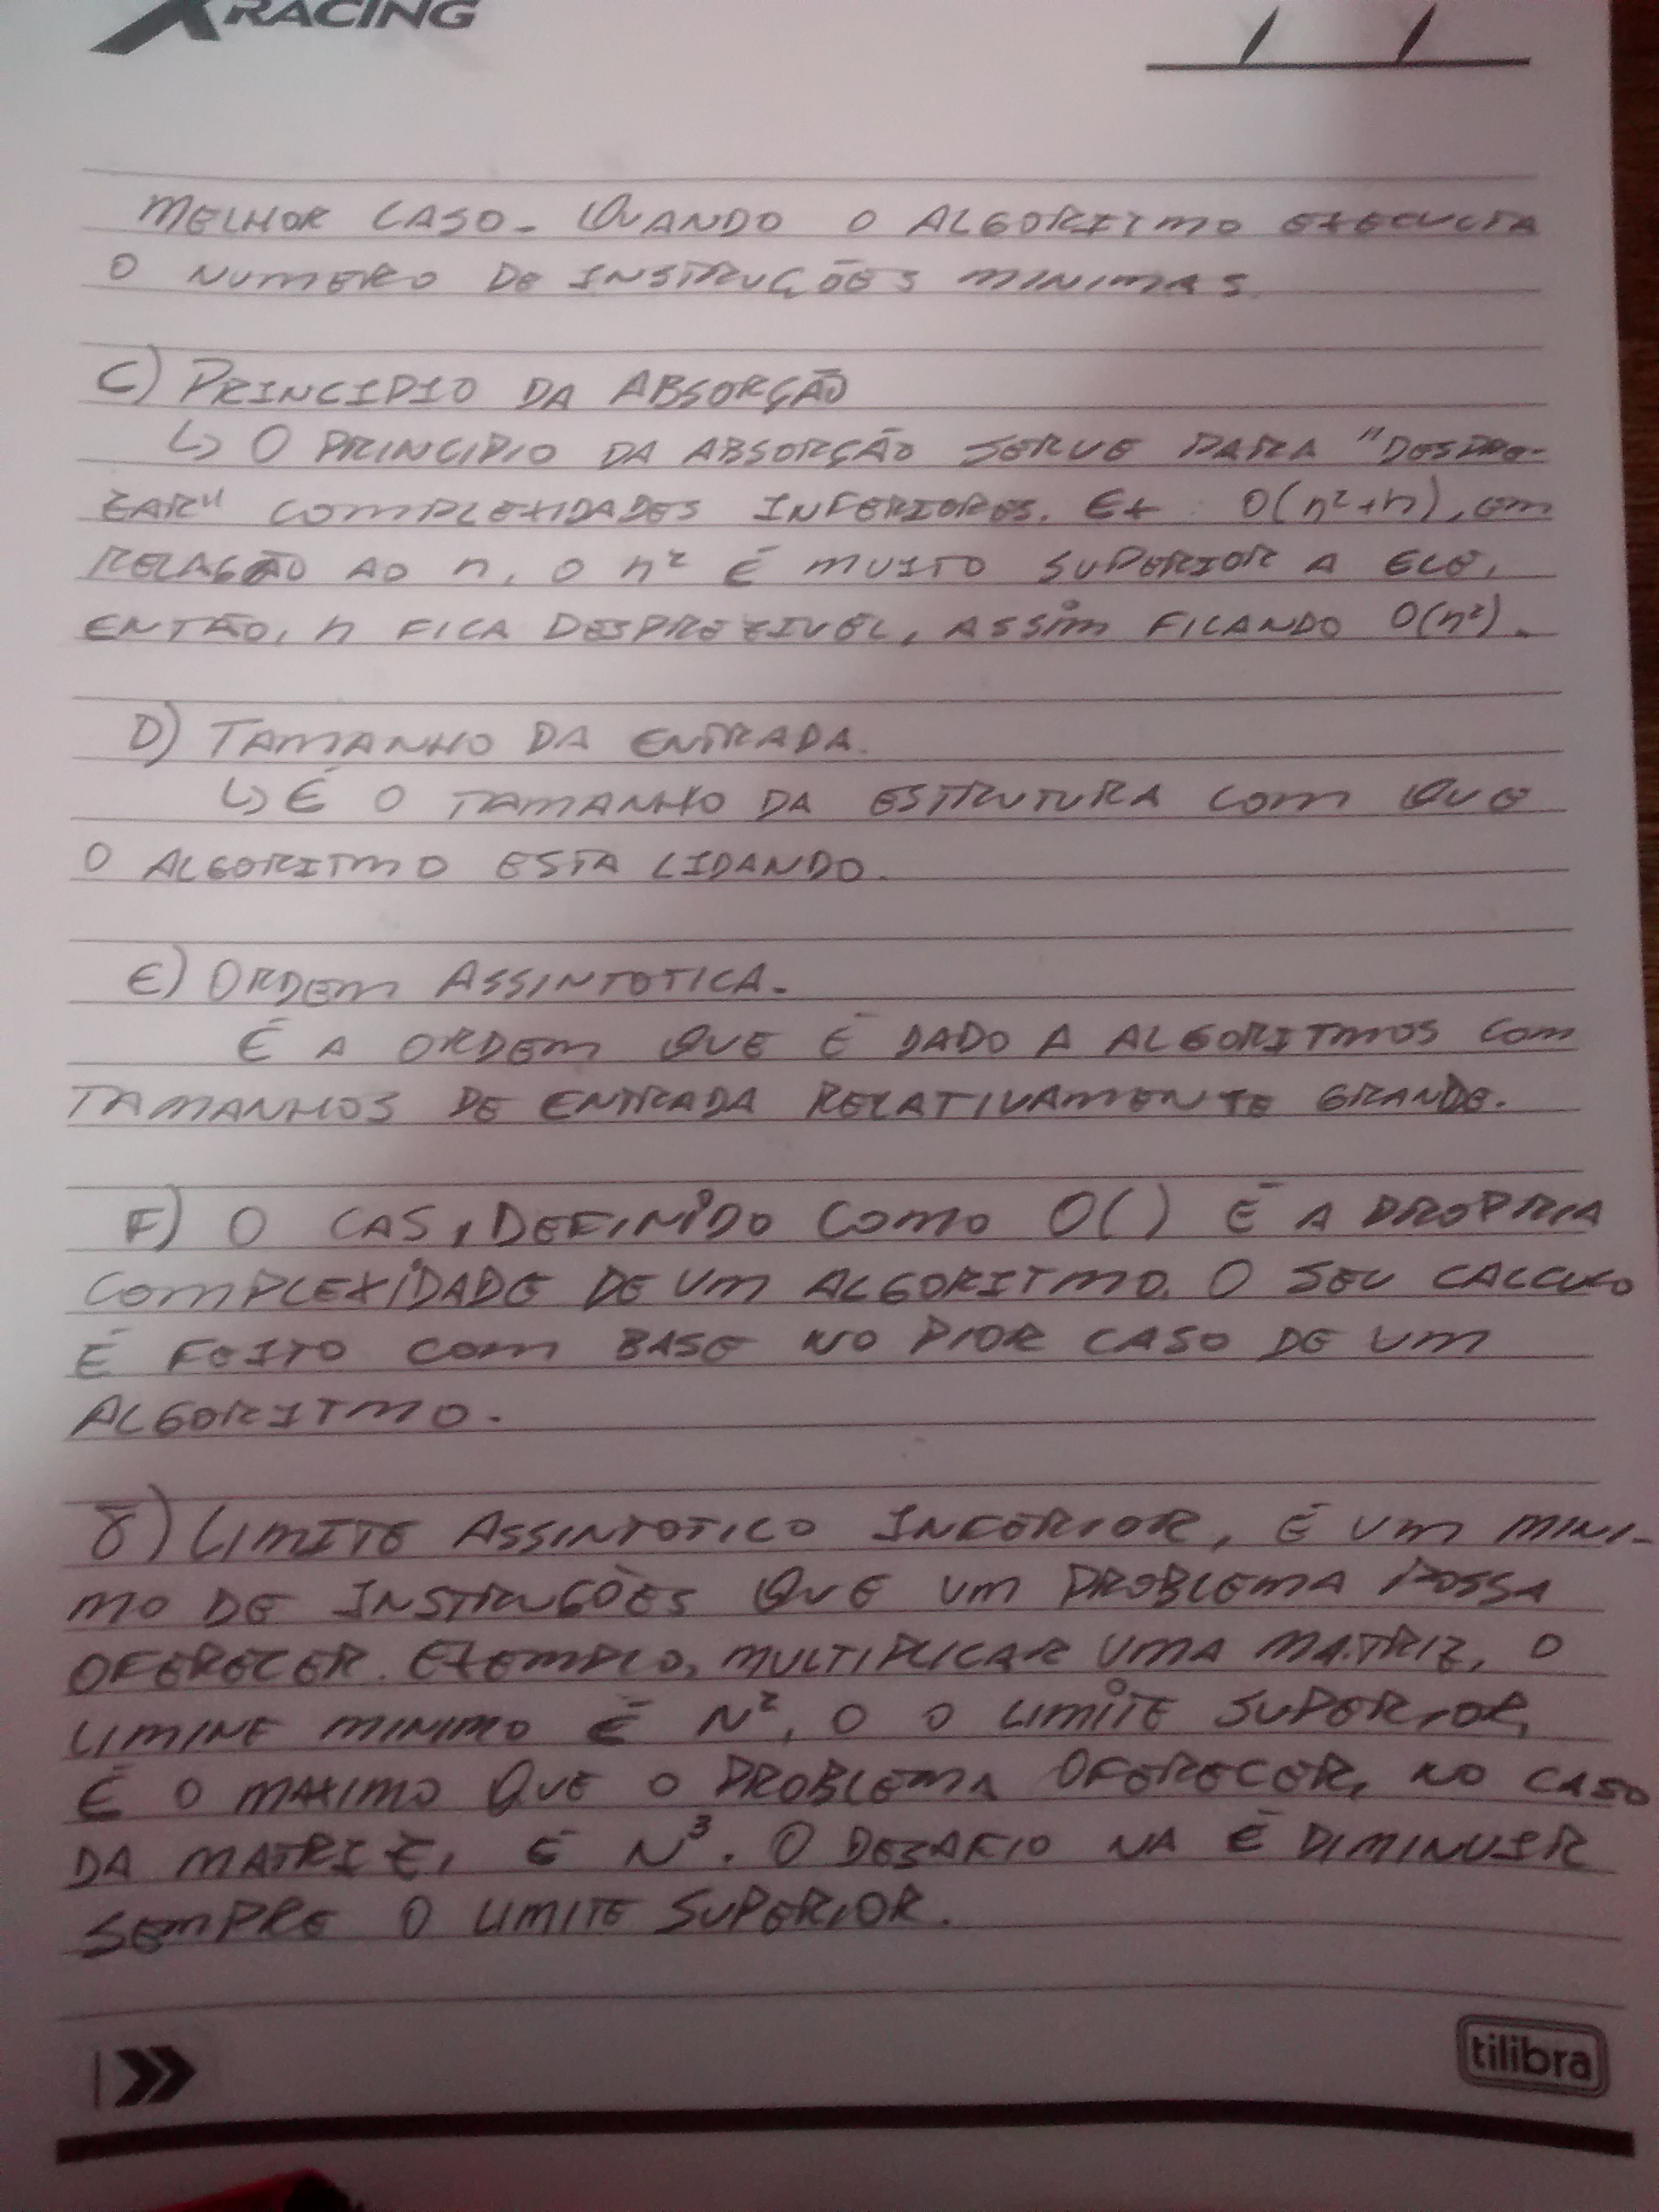 XRACING
/ /
MELHOR CASO - QUANDO O ALGORITMO EXECUTA
O NUMERO DE INSTRUÇÕES MINIMAS.
C) PRINCIPIO DA ABSORÇÃO
↳ O PRINCIPIO DA ABSORÇÃO SERVE PARA "DESPRE-
ZAR" COMPLEXIDADES INFERIORES. EX: O(n²+n), em
RELAÇÃO AO n, O n² É MUITO SUPERIOR A ELE,
ENTÃO, n FICA DESPREZIVEL, ASSIM FICANDO O(n²).
D) TAMANHO DA ENTRADA.
↳ É O TAMANHO DA ESTRUTURA COM QUE
O ALGORITMO ESTA LIDANDO.
E) ORDEM ASSINTOTICA.
É A ORDEM QUE É DADO A ALGORITMOS COM
TAMANHOS DE ENTRADA RELATIVAMENTE GRANDE.
F) O CAS, DEFINIDO COMO O( ) É A PROPRIA
COMPLEXIDADE DE UM ALGORITMO. O SEU CALCULO
É FEITO COM BASE NO PIOR CASO DE UM
ALGORITMO.
8) LIMITE ASSINTOTICO INFERIOR, É UM MINI-
MO DE INSTRUÇÕES QUE UM PROBLEMA POSSA
OFERECER. EXEMPLO, MULTIPLICAR UMA MATRIZ, O
LIMINE MINIMO É N², O O LIMITE SUPERIOR,
É O MAXIMO QUE O PROBLEMA OFERECER, NO CASO
DA MATRIZ, É N³. O DESAFIO NA É DIMINUIR
SEMPRE O LIMITE SUPERIOR.
tilibra